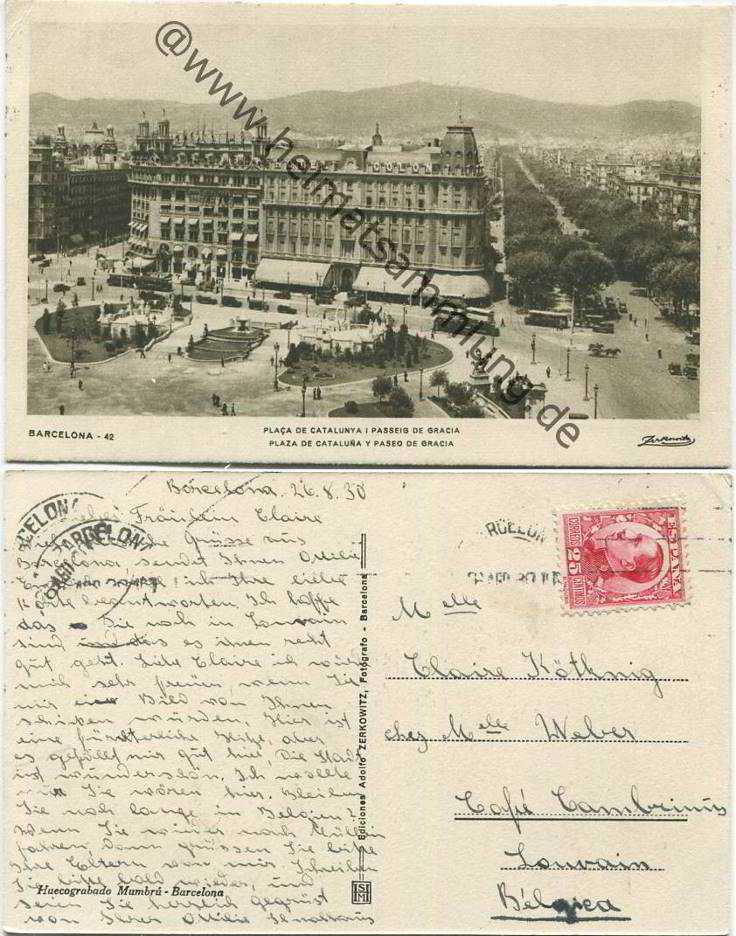 @www.heimatsammlung.de
BARCELONA - 42
PLAÇA DE CATALUNYA I PASSEIG DE GRACIA
PLAZA DE CATALUÑA Y PASEO DE GRACIA
Zerkowitz
Barcelona. 26.8.30
Liebes Fräulein Claire
Grüsse aus
Barcelona, sendet Ihnen Ottilie
ich Ihre
Karte beantworten. Ich hoffe
das Sie noch in Louvain
sind und das es ihnen recht
gut geht. Liebe Claire ich würde
mich sehr freuen, wenn Sie
mir ein Bild von Ihnen
schicken würden. Hier ist
eine fürchterliche Hitze, aber
es gefällt mir gut hier, Die Stadt
ist wunderschön. Ich wollte
Sie wären hier. Bleiben
Sie noch lange in Belgien?
Wenn Sie wieder nach
fahren, dann grüssen Sie bitte
Ihre Eltern von mir. Schreiben
Sie bitte bald wieder, und
seien Sie herzlich gegrüst
von Ihrer Ottilie
Huecograbado Mumbrú - Barcelona
Ediciones Adolfo ZERKOWITZ, Fotógrafo - Barcelona
BARCELONA
BARCELONA
BARCELONA
ESPAÑA
CORREOS
25
CENTIMOS
Melle
Claire Köthnig
chez Melle Weber
Café Cambrinus
Louvain
Bélgica